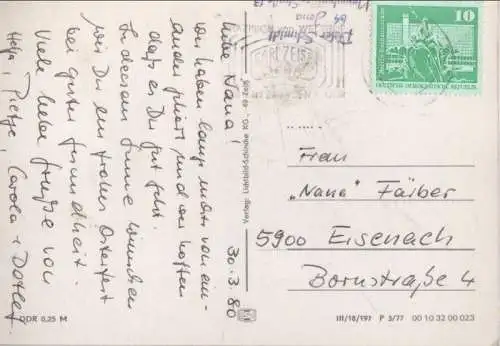 30.3.80
Liebe Nana!
Wir haben lange nichts von ein-
ander gehört und wir hoffen
daß es Dir gut geht.
In diesem Sinne wünschen
wir Dir ein frohes Osterfest
bei guter Gesundheit.
Viele liebe Grüße von
Helga, Pietje, Carola + Detlef
DDR 0,25 M
Verlag: Lichtbild-Schincke KG
Peter Schmidt
Jena
CARL ZEISS
10
DEUTSCHE DEMOKRATISCHE REPUBLIK
Frau
„Nana" Färber
5900 Eisenach
Bornstraße 4
III/18/197 P 3/77 00 10 32 00 023